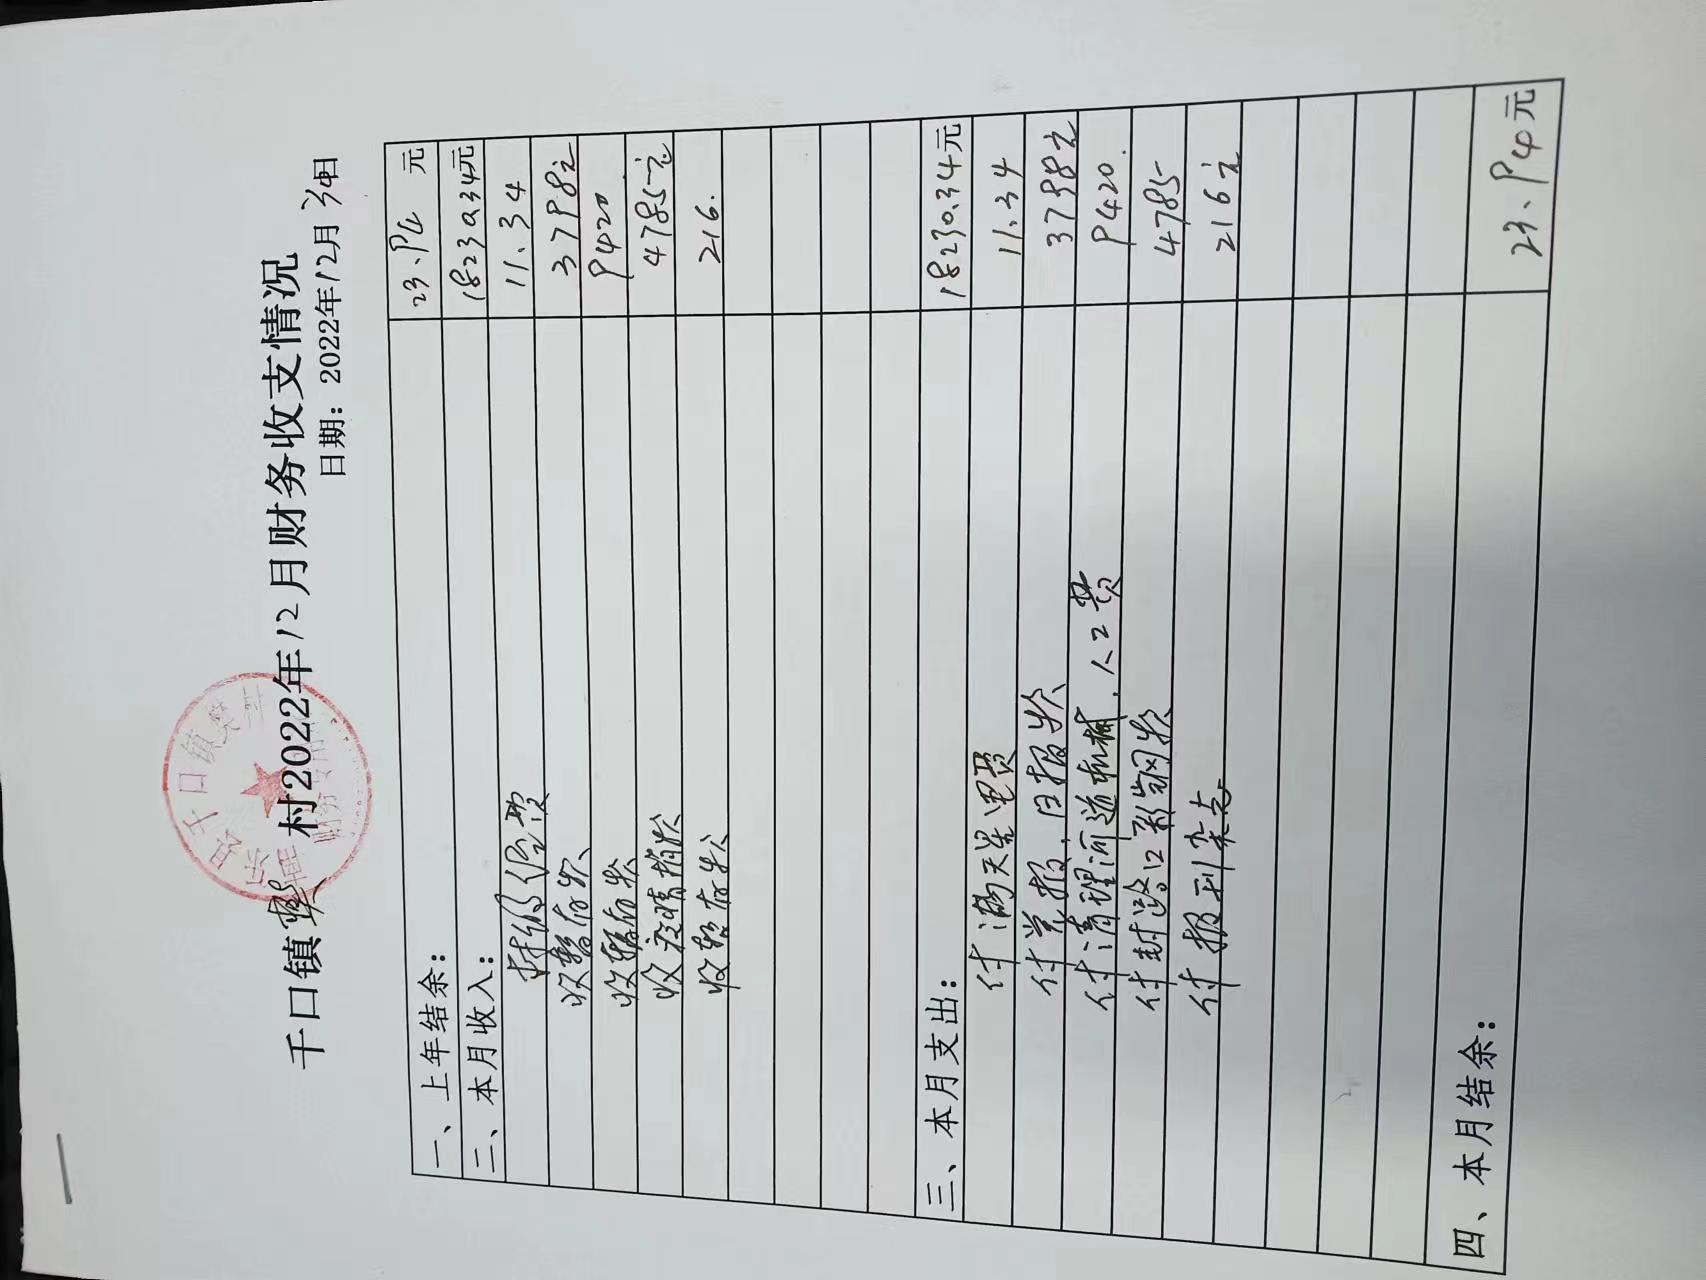 南乐县千口镇樊村
财务专用章
千口镇樊村2022年12月财务收支情况
日期：2022年12月30日
一、上年结余： 23.94元
二、本月收入： 18230.34元
村级经费 11.34
收暂存款 3798元
收暂存款 9420.
收疫情捐款 4785元
收暂存款 216.
三、本月支出： 18230.34元
付满天星电费 11.34
付党报、日报款 3798元
付清理河道机械、人工费 9420.
付封路口彩钢款 4785
付报刊杂志 216元
四、本月结余： 23.94元